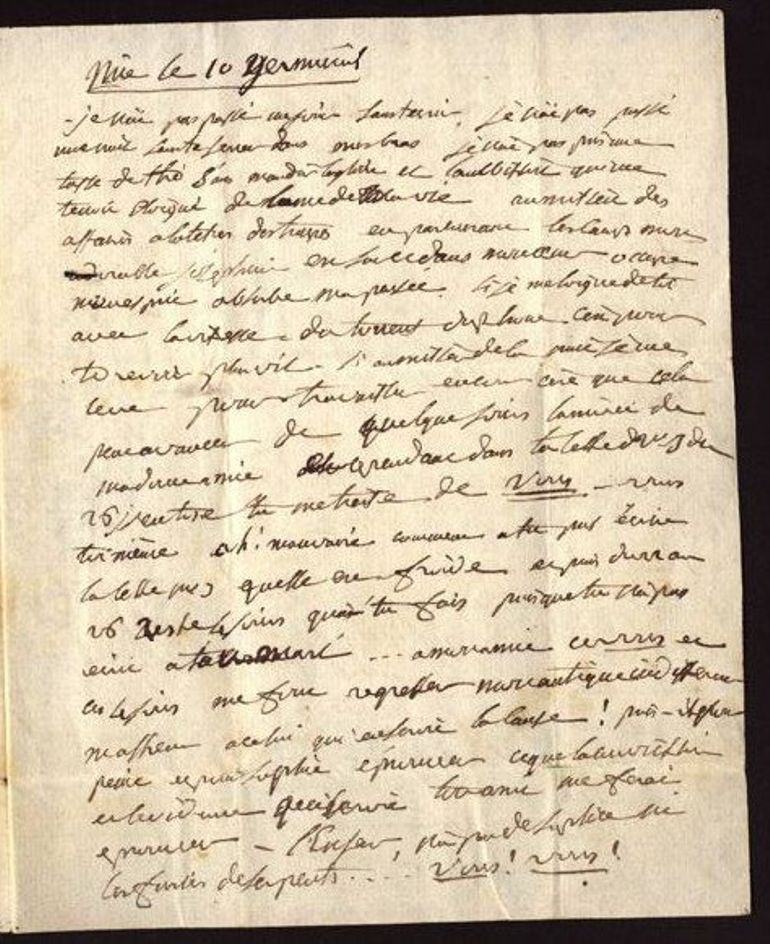 Nice le 10 germinal
- je n'ai pas passé un jour sans t'écrire, je n'ai pas passé
une nuit sans te serrer dans mes bras je n'ai pas pris une
tasse de thé sans maudire la gloire et l'ambition qui me
tienne éloigné de l'ame de ma vie au milieu des
affaires a la tete des troupes en parcourant les camps mon
adorable Josephine est seule dans mon cœur occupe
mon esprit absorbe ma pensée. si je m'éloigne de toi
avec la vitesse du torrent du rhone c'est pour
te revoir plus vite - si au milieu de la nuit je me
leve pour travailler encore c'est que cela
peut avancer de quelque jours l'arrivée de
ma douce amie et cependant dans ta lettre du 23 au
26 ventose tu me traite de vous - vous
toi même ah! mauvaise comment a tu pu écrire
la lettre quelle est froide et puis du 23 au
26 reste 4 jours qu'a tu fais puisque tu n'a pas
écrit a ton mari ... ah mon amie ce vous et
ces 4 jours me font regretter mon antique indifference
malheur a celui qui en serait la cause ! puisse t'il pour
peine et pour suplice éprouver ce que la conviction
et l'evidence qui servit ton ami me ferait
eprouver - l'enfer n'a pas de suplice ni
les furies de serpents .... vous! vous!